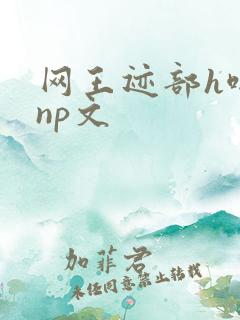 网王迹部h
np文
加菲君
未经同意禁止转载